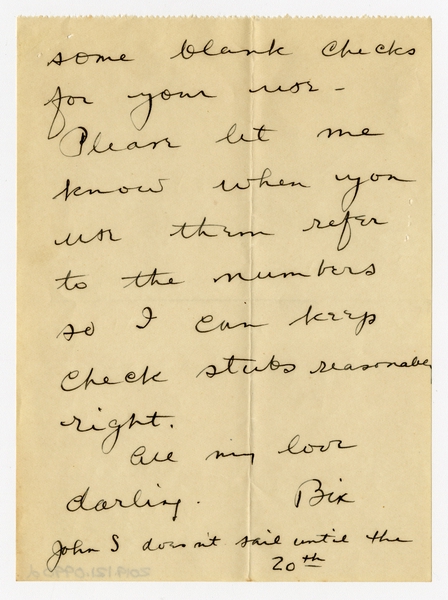 some blank checks
for your use -
Please let me
know when you
use them refer
to the numbers
so I can keep
check stubs reasonably
right.
All my love
darling. Bix
John S doesn't sail until the
20th